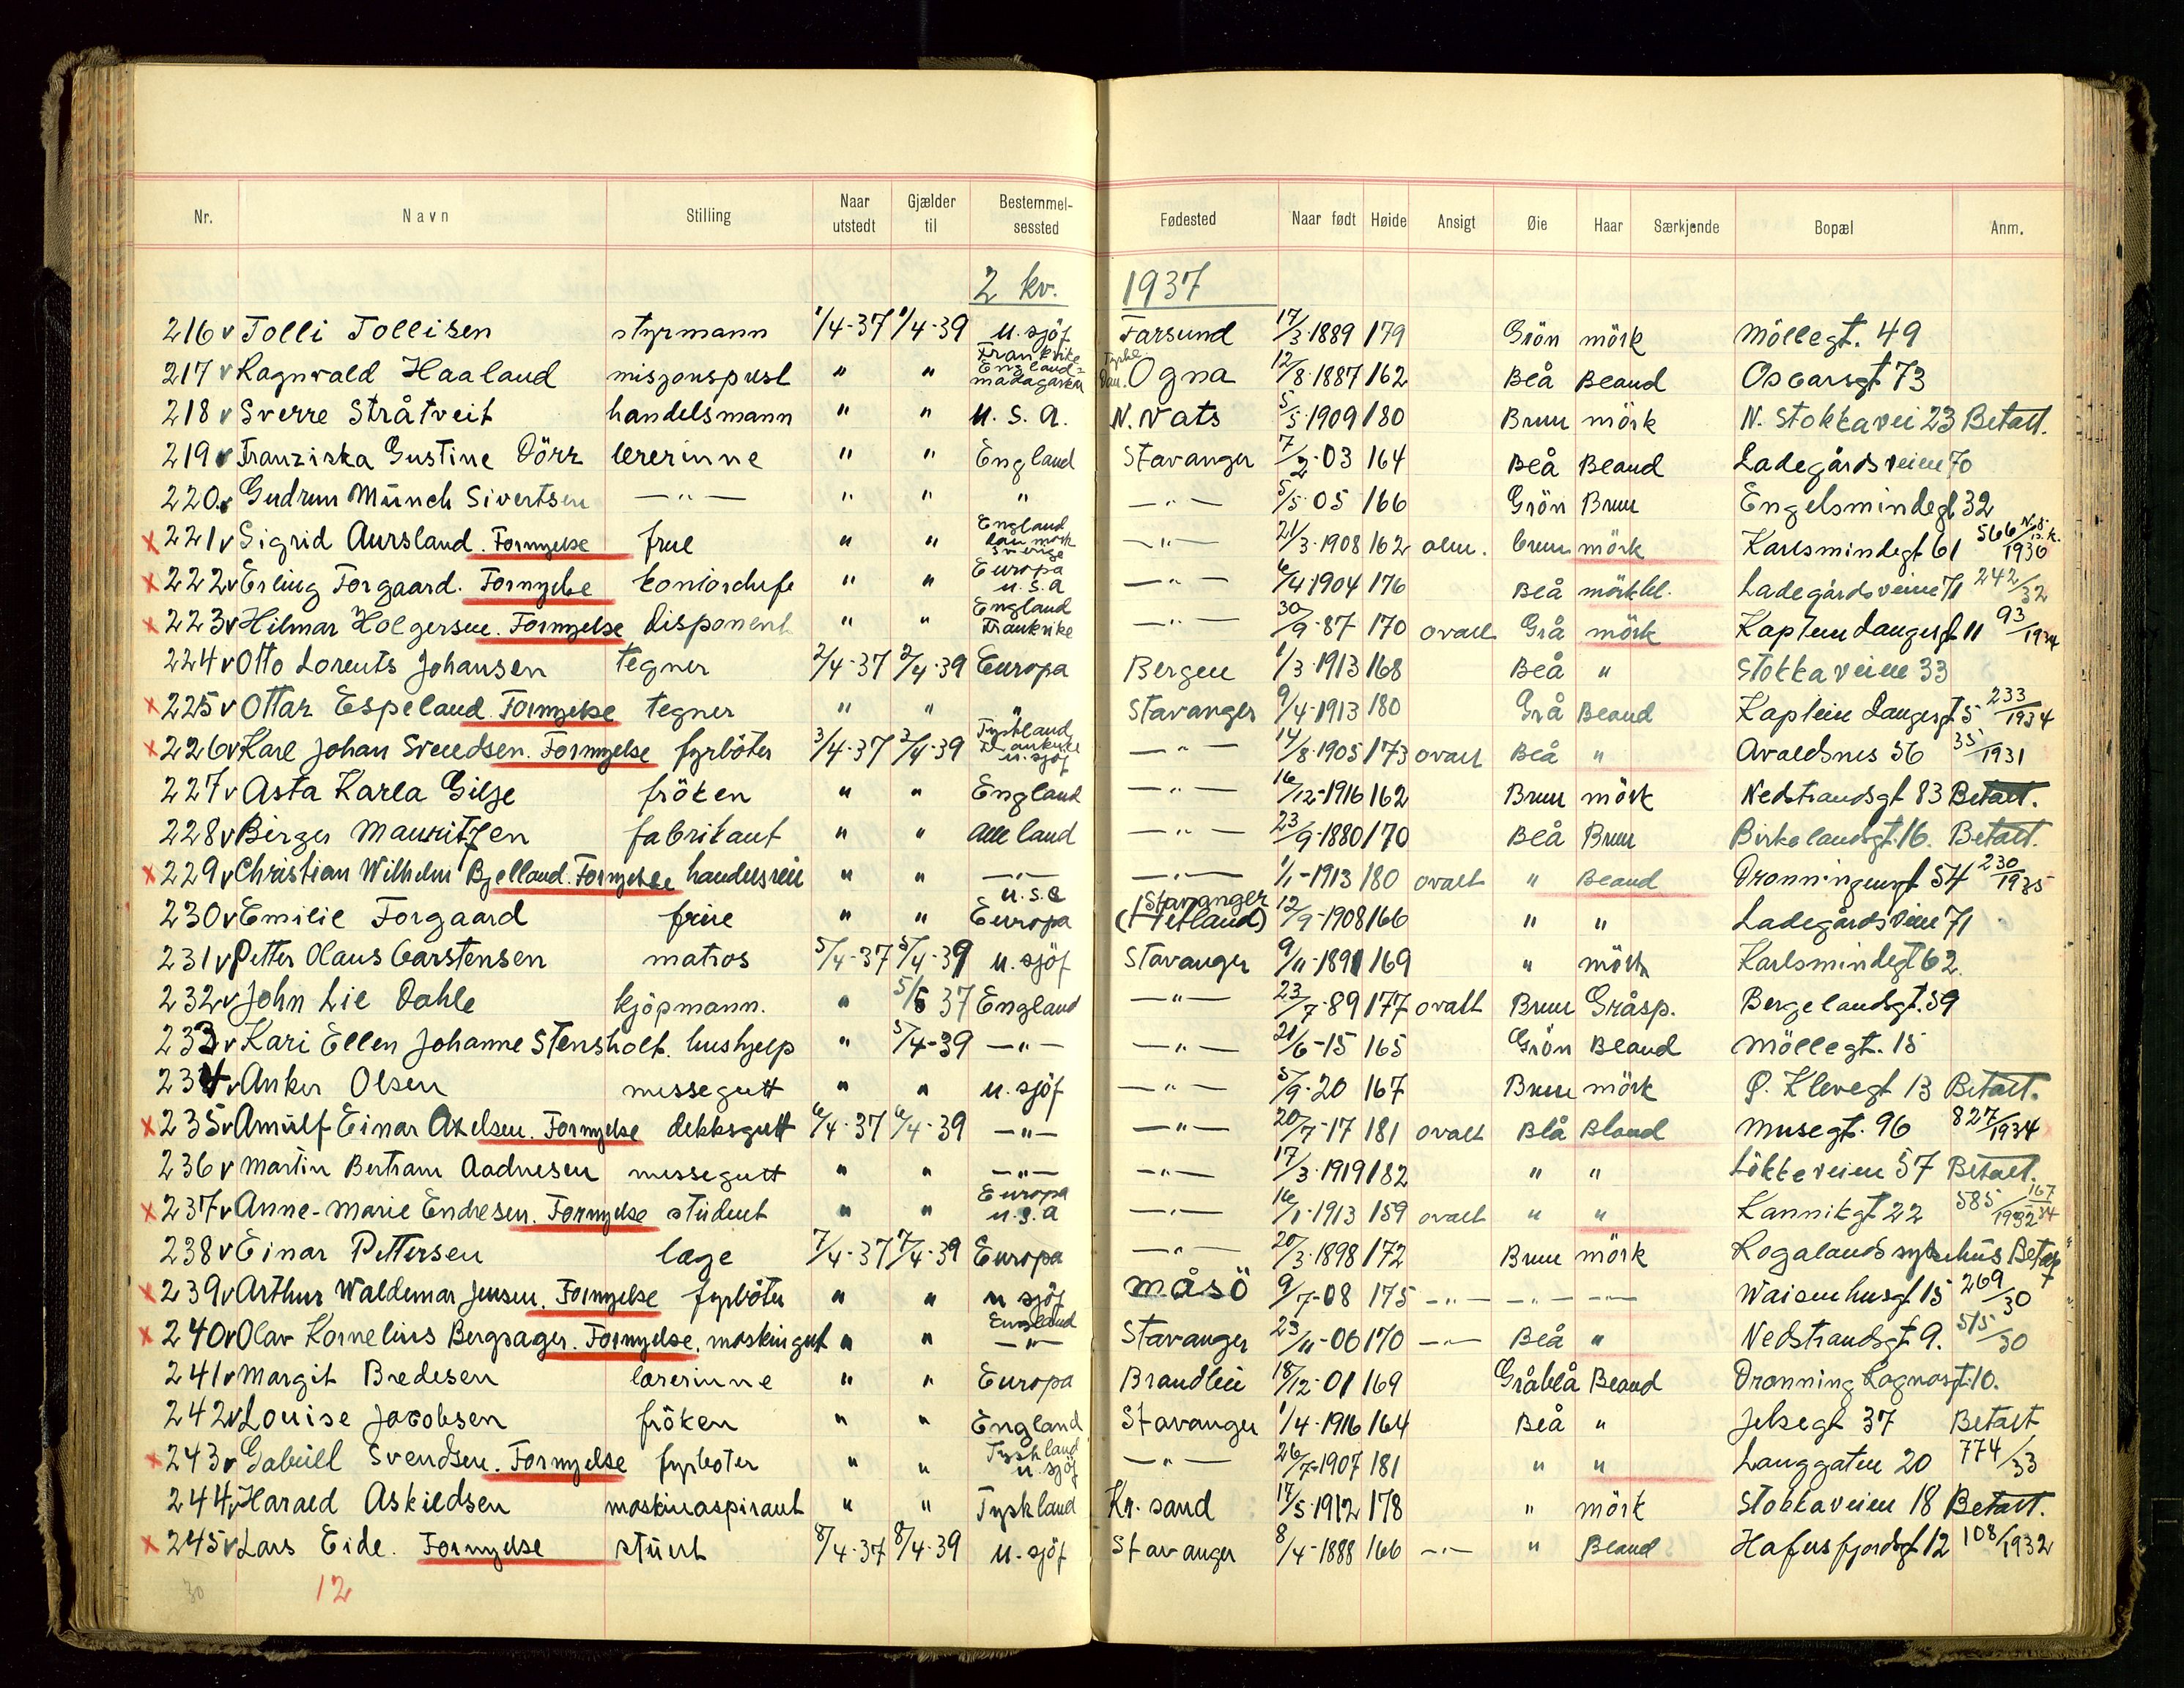 Nr. Navn Stilling Naar utstedt Gjælder til Bestemmelsessted Fødested Naar født Høide Ansigt Øie Haar Særkjende Bopæl Anm.
2 kv. 1937
216 v Tolli Tollisen styrmann 1/4-37 1/4-39 u. sjöf Farsund 17/3-1889 179 Grön mörk Möllegt. 49
217 v Ragnvald Haaland misjonsprest " " Frankrike England madagaskar Ogna 12/8-1887 162 Blå Bland Oscarsgt 73
218 v Sverre Stråtveit handelsmann " " U.S.A. N. Vats 5/5-1909 180 Brun mörk N. Stokkavei 23 Betalt.
219 v Franziska Gustine Dörr lærerinne " " England Stavanger 7/2-03 164 Blå Blond Ladegårdsveien 70
220 v Gudrun Münch Sivertsen —"— " " " —"— 5/5-05 166 Grön Brun Engelsmindegt 32
x 221 v Sigrid Aursland. Fornyelse frue " " England Danmark Sverige —"— 21/3-1908 162 alm. brun mörk Karlsmindegt 61 566 1936
x 222 v Erling Torgaard. Fornyelse kontorchefe " " Europa U.S.A —"— 6/4-1904 176 Blå mörkbl. Ladegårdsveien 71 242/32
x 223 v Hilmar Holgersen. Fornyelse Disponent " " England Frankrike —"— 30/9-87 170 ovalt Grå mörk Kaptein Langesgt 11 93/1934
224 v Otto Lorents Johansen tegner 2/4-37 2/4-39 Europa Bergen 1/3-1913 168 Blå " Stokkaveien 33
x 225 v Ottar Espeland. Fornyelse tegner " " " Stavanger 9/4-1913 180 Grå Blond Kaptein Langesgt 5 233/1934
x 226 v Karl Johan Svendsen. Fornyelse fyrböter 3/4-37 3/4-39 Tyskland Frankrike u. sjöf —"— 14/8-1905 173 ovalt Blå " Avaldsnes 56 35/1931
227 v Asta Karla Gilje fröken " " England —"— 16/12-1916 162 Brun mörk Nedstrandsgt 83 Betalt.
228 v Birger Mauritzen fabrikant " " alle land —"— 23/9-1880 170 Blå Brun Birkelandsgt. 16. Betalt.
x 229 v Christian Wilhelm Bjelland. Fornyelse handelsreis " " —"— —"— 1/1-1913 180 ovalt " Blond Dronningensgt 54 230/1935
230 v Emilie Torgaard frue " " U.S.A Europa Stavanger (Hetland) 12/9-1908 166 " " Ladegårdsveien 71
231 v Petter Olaus Carstensen matros 5/4-37 5/4-39 u. sjöf Stavanger 9/11-1891 169 " mörk Karlsmindegt 62.
232 v John Lie Dahle kjöpmann. " 5/6 37 England —"— 23/7-89 177 ovalt Brun Gråsp. Bergelandsgt. 59
233 v Kari Ellen Johanne Stensholt. hushjelp " 5/4-39 —"— —"— 21/6-15 165 Grön Blond Möllegt. 15
234 v Anker Olsen messegutt " " u. sjöf —"— 5/9-20 167 Brun mörk P. Klevegt 13 Betalt.
x 235 v Arnulf Einar Axelsen. Fornyelse dekksgutt 6/4-37 6/4-39 —"— —"— 20/7-17 181 ovalt Blå Blond Musegt. 96 827/1934
236 v Martin Bertram Aadnesen messegutt " " —"— —"— 17/3-1919 182 " " Lökkeveien 57 Betalt.
x 237 v Anne-Marie Endresen. Fornyelse student " " Europa U.S.A —"— 16/1-1913 159 ovalt " " Kannikgt 22 585/1932 167/34
238 v Einar Pettersen læge 7/4-37 7/4-39 Europa —"— 20/3-1898 172 Brun mörk Rogalands sykehus Betalt
x 239 v Arthur Waldemar Jensen. Fornyelse fyrböter " " u sjöf Måsö 9/7-08 175 —"— —"— —"— Waisenhusgt 15 269/30
x 240 v Olav Kornelius Bergsager. Fornyelse. maskingut " " England —"— Stavanger 23/11-06 170 —"— Blå " Nedstrandsgt 9. 515/30
241 v Margit Bredesen lærerinne " " Europa Brandlei 18/12-01 169 Gråblå Blond Dronning Ragnasgt. 10.
242 v Louise Jacobsen fröken " " England Stavanger 1/4-1916 164 Blå " Jelsegt 37 Betalt
x 243 v Gabriell Svendsen. Fornyelse fyrboter " " Tyskland u. sjöf —"— 26/7-1907 181 " " Langgaten 20 774/33
244 v Harald Askildsen maskinaspirant " " Tyskland Kr. sand 17/5-1912 178 " mörk Stokkaveien 18 Betalt.
x 245 v Lars Eide. Fornyelse stuert 8/4-37 8/4-39 u. sjöf Stavanger 8/4-1888 166 —"— " Blond Hafrsfjordgt 12 108/1932
30 12